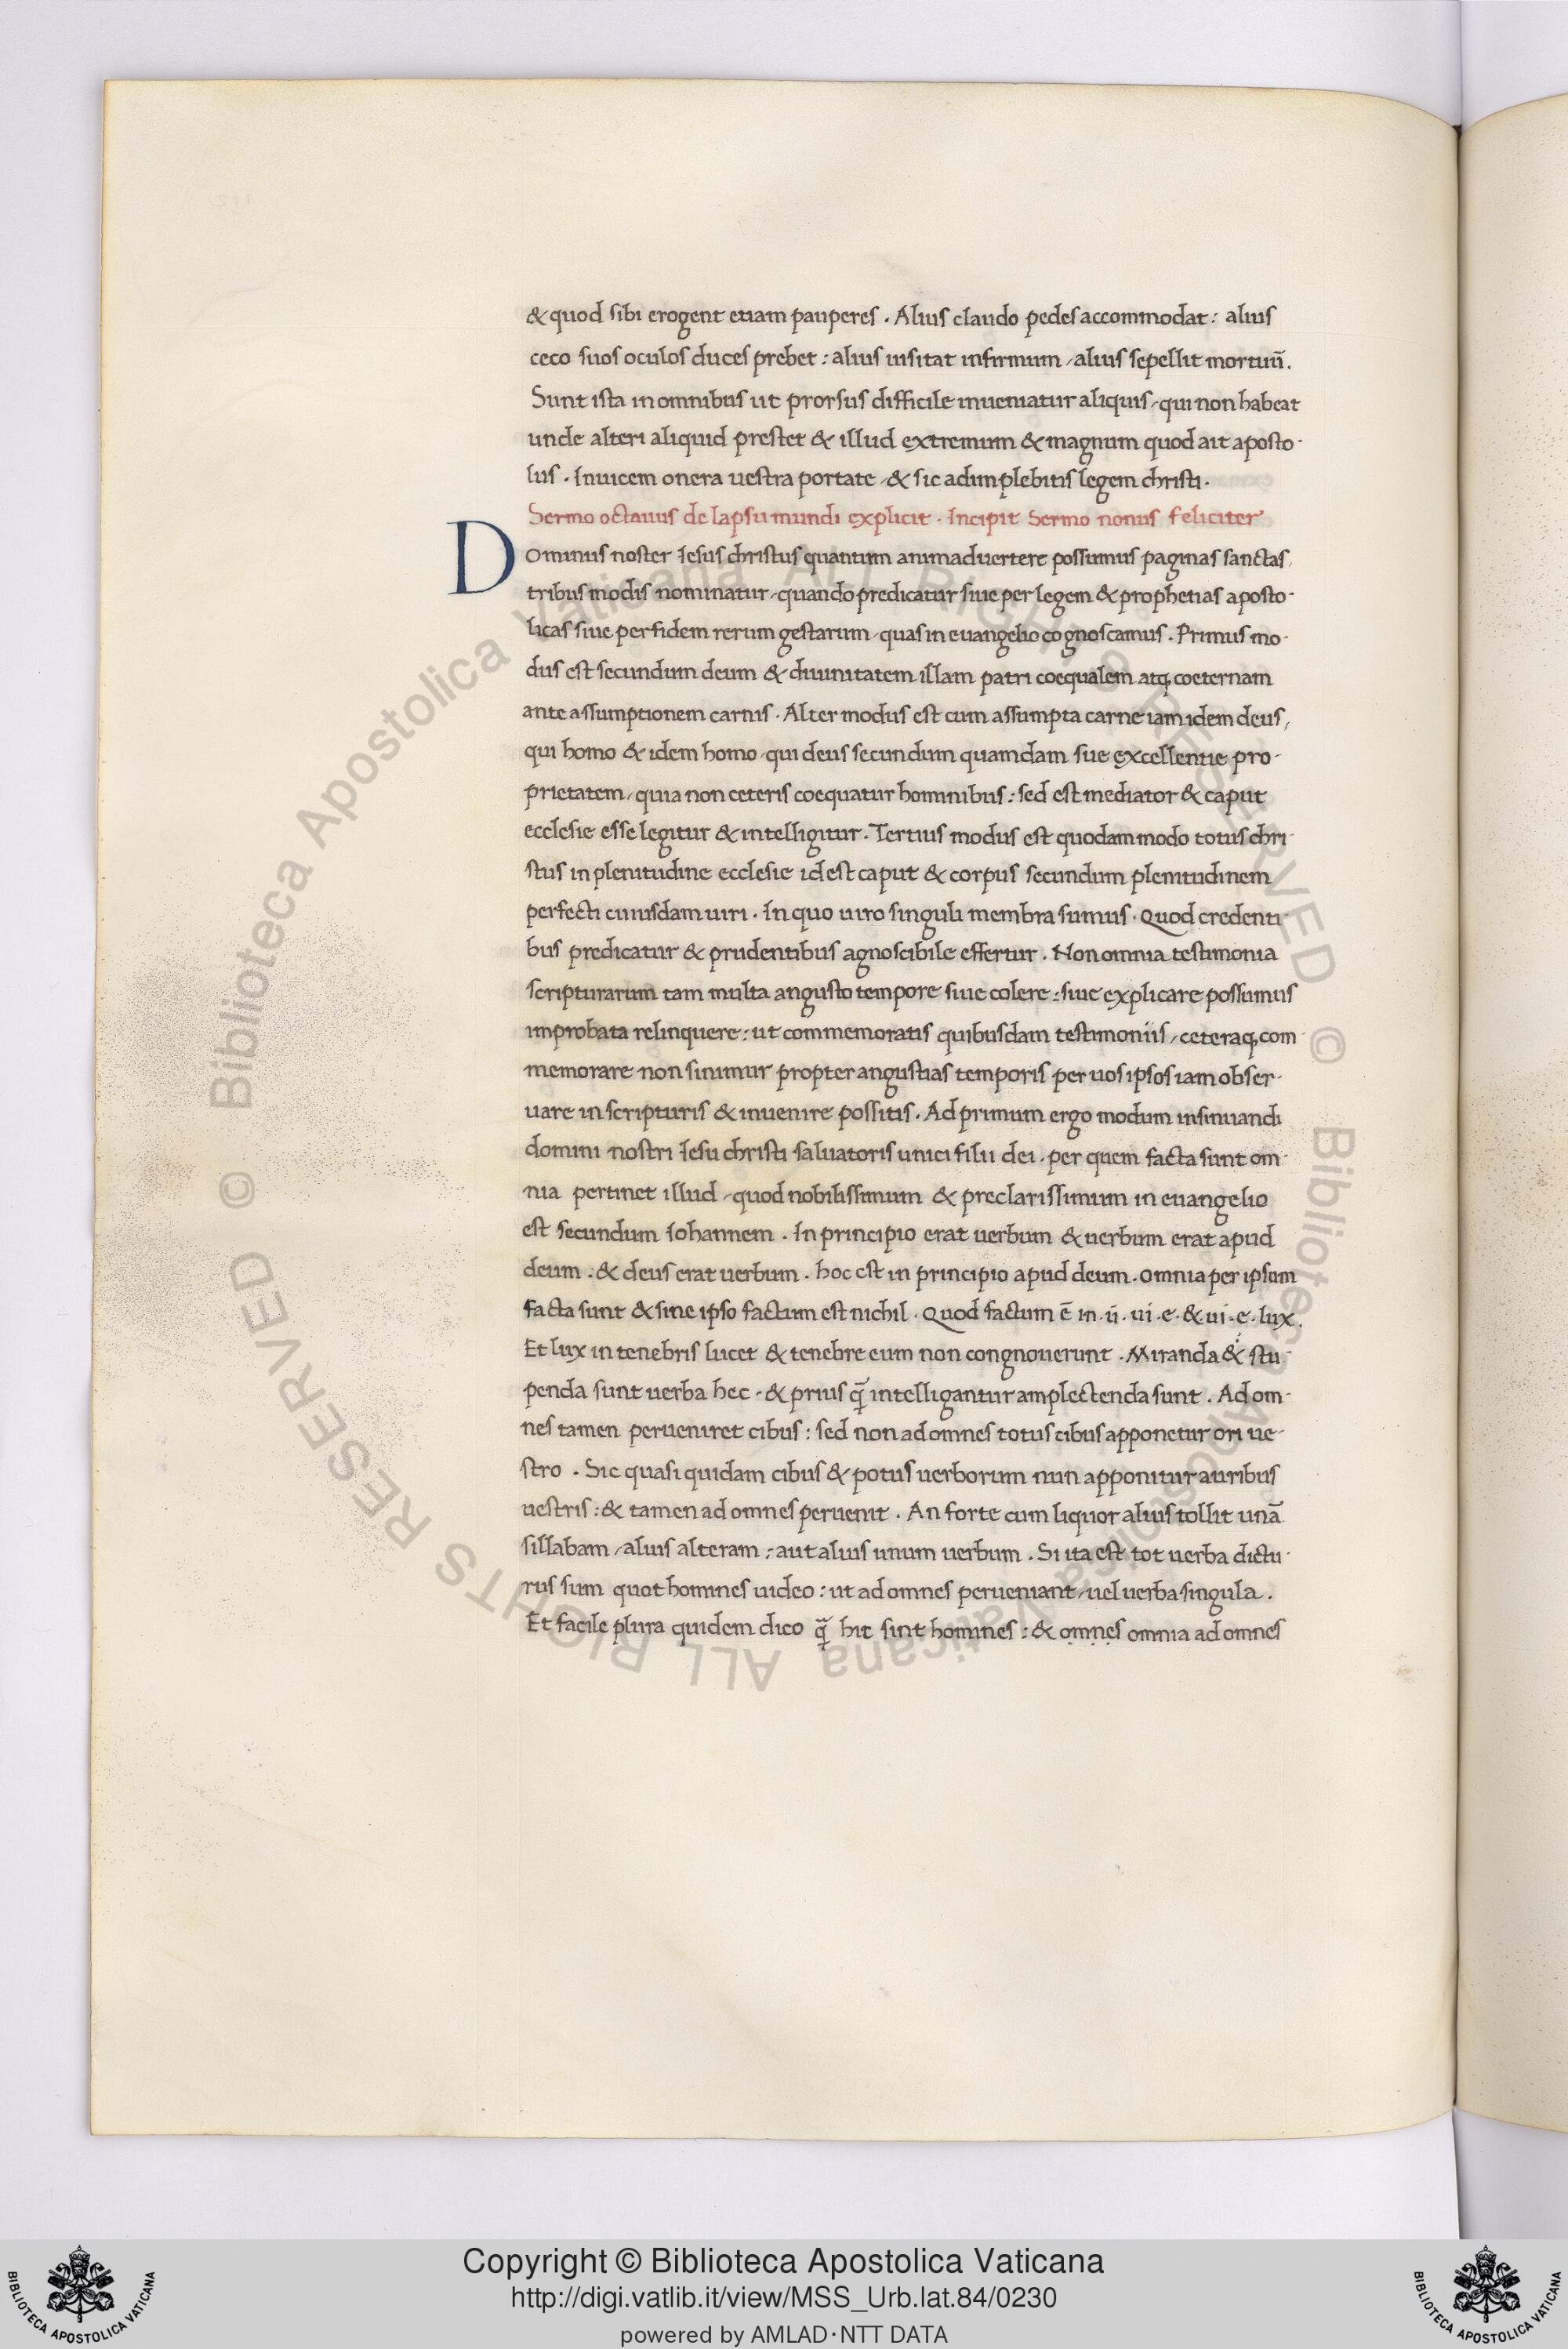 & quod sibi erogent etiam pauperes . Alius claudo pedes accommodat : alius
ceco suos oculos duces prebet : alius uisitat infirmum / alius sepellit mortuū .
Sunt ista in omnibus ut prorsus difficile inueniatur aliquis / qui non habeat
unde alteri aliquid prestet & illud extremum & magnum quod ait aposto-
lus . Inuicem onera uestra portate / & sic adimplebitis legem christi .
Sermo octauus de lapsu mundi explicit . Incipit Sermo nonus feliciter
Dominus noster Iesus christus quantum animaduertere possumus paginas sanctas /
tribus modis nominatur / quando predicatur siue per legem & prophetias aposto-
licas siue per fidem rerum gestarum / quas in euangelio cognoscamus . Primus mo-
dus est secundum deum & diuinitatem illam patri coequalem atq; coeternam
ante assumptionem carnis . Alter modus est cum assumpta carne iam idem deus /
qui homo & idem homo / qui deus secundum quamdam sue excellentie pro-
prietatem / quia non ceteris coequatur hominibus : sed est mediator & caput
ecclesie esse legitur & intelligitur . Tertius modus est quodam modo totus chri-
stus in plenitudine ecclesie id est caput & corpus secundum plenitudinem
perfecti cuiusdam uiri . In quo uiro singuli membra sumus . Quod credenti-
bus predicatur & prudentibus agnoscibile effertur . Non omnia testimonia
scripturarum tam multa angusto tempore siue colere : siue explicare possumus
improbata relinquere : ut commemoratis quibusdam testimoniis / ceteraq; com-
memorare non sinimur propter angustias temporis per uos ipsos iam obser-
uare in scripturis & inuenire possitis . Ad primum ergo modum insinuandi
domini nostri Iesu christi saluatoris unici filii dei . per quem facta sunt om-
nia pertinet illud / quod nobilissimum & preclarissimum in euangelio
est secundum Iohannem . In principio erat uerbum & uerbum erat apud
deum : & deus erat uerbum . hoc est in principio apud deum . omnia per ipsum
facta sunt & sine ipso factum est nichil . Quod factum ē in . ii . ui . e . & ui . e . lux .
Et lux in tenebris lucet & tenebre eum non congnouerunt . Miranda & stu-
penda sunt uerba hec / & prius q̄ intelligantur amplectenda sunt . Ad om-
nes tamen perueniret cibus : sed non ad omnes totus cibus apponetur ori ue-
stro . Sic quasi quidam cibus & potus uerborum nun apponitur auribus
uestris : & tamen ad omnes peruenit . An forte cum liquor alius tollit unā
sillabam / alius alteram : aut alius unum uerbum . Si ita est tot uerba dictu-
rus sum quot homines uideo : ut ad omnes perueniant / uel uerba singula .
Et facile plura quidem dico q̄ hic sint homines : & omnes omnia ad omnes
Copyright © Biblioteca Apostolica Vaticana
http://digi.vatlib.it/view/MSS_Urb.lat.84/0230
powered by AMLAD·NTT DATA